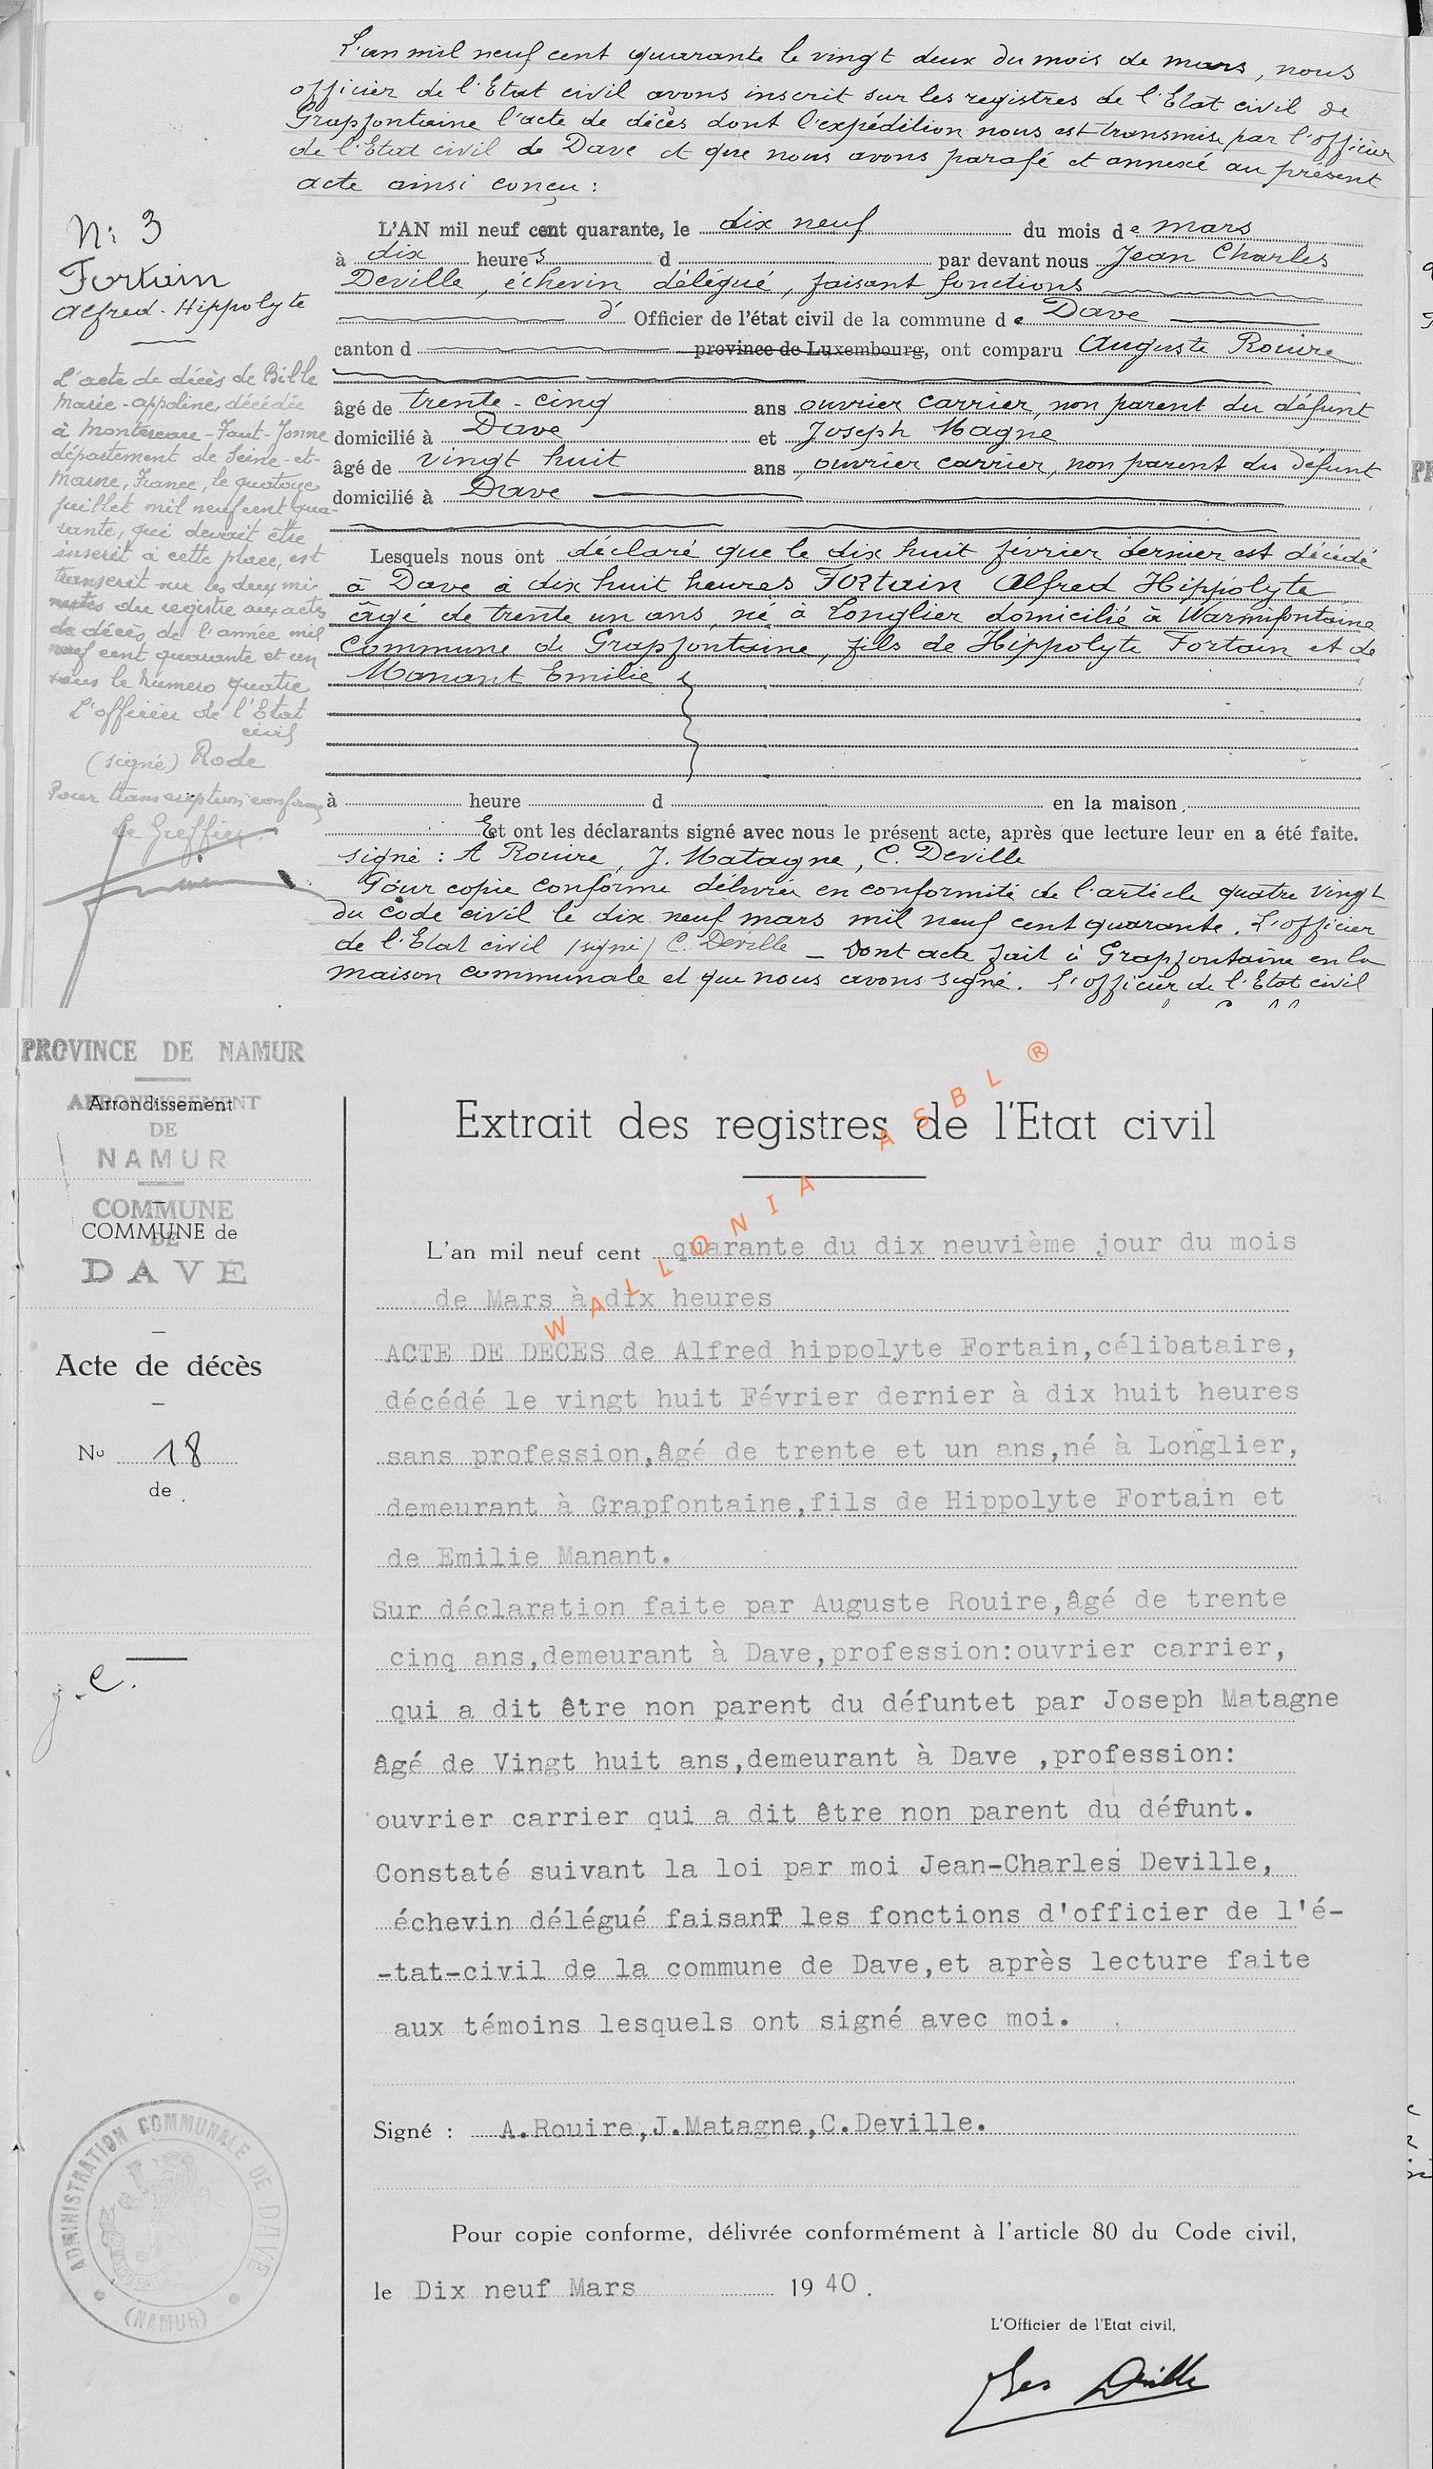 L'an mil neuf cent quarante le vingt deux du mois de mars, nous
officier de l'Etat civil avons inscrit sur les registres de l'Etat civil de
Grapfontaine l'acte de décès dont l'expédition nous est transmise par l'officier
de l'Etat civil de Dave et que nous avons parafé et annexé au présent
acte ainsi conçu :
N: 3
Fortain
Alfred-Hippolyte
L'AN mil neuf cent quarante, le dix neuf du mois de mars
à dix heures d par devant nous Jean Charles
Deville, échevin délégué, faisant fonctions
d' Officier de l'état civil de la commune de Dave
canton d province de Luxembourg, ont comparu Auguste Rouire
âgé de trente-cinq ans ouvrier carrier, non parent du défunt
domicilié à Dave et Joseph Magne
âgé de vingt huit ans, ouvrier carrier, non parent du défunt
domicilié à Dave
Lesquels nous ont déclaré que le dix huit février dernier est décédé
à Dave à dix huit heures Fortain Alfred Hippolyte
âgé de trente un ans, né à Longlier domicilié à Warmifontaine
Commune de Grapfontaine, fils de Hippolyte Fortain et de
Manant Emilie
à heure d en la maison
Et ont les déclarants signé avec nous le présent acte, après que lecture leur en a été faite.
signé : A Rouire, J. Matagne, C. Deville
Pour copie conforme délivrée en conformité de l'article quatre vingt
du code civil le dix neuf mars mil neuf cent quarante. L'officier
de l'Etat civil (signé) C. Deville _ Dont acte fait à Grapfontaine en la
maison communale et que nous avons signé. L'officier de l'Etat civil
L'acte de décès de Bille
Marie-Appoline, décédée
à Montereau-Faut-Yonne
département de Seine-et-
Marne, France, le quatorze
juillet mil neuf cent qua-
rante, qui devait être
inscrit à cette place, est
transcrit sur les deux mi
nutes du registre aux actes
de décès de l'année mil
neuf cent quarante et un
sous le numéro quatre
L'officier de l'Etat
civil
(signé) Rode
Pour transcription conforme
Le Greffier
PROVINCE DE NAMUR
ARRONDISSEMENT
Arrondissement
DE
NAMUR
COMMUNE
COMMUNE de
DE
DAVE
Acte de décès
No 18
de
j. C.
Extrait des registres de l'Etat civil
WALLONIA ASBL ®
L'an mil neuf cent quarante du dix neuvième jour du mois
de Mars à dix heures
ACTE DE DECES de Alfred hippolyte Fortain,célibataire,
décédé le vingt huit Février dernier à dix huit heures
sans profession,âgé de trente et un ans,né à Longlier,
demeurant à Grapfontaine,fils de Hippolyte Fortain et
de Emilie Manant.
Sur déclaration faite par Auguste Rouire,âgé de trente
cinq ans,demeurant à Dave,profession:ouvrier carrier,
qui a dit être non parent du défuntet par Joseph Matagne
âgé de Vingt huit ans,demeurant à Dave ,profession:
ouvrier carrier qui a dit être non parent du défunt.
Constaté suivant la loi par moi Jean-Charles Deville,
échevin délégué faisanT les fonctions d'officier de l'é-
-tat-civil de la commune de Dave,et après lecture faite
aux témoins lesquels ont signé avec moi.
Signé : A.Rouire,J.Matagne,C.Deville.
Pour copie conforme, délivrée conformément à l'article 80 du Code civil,
le Dix neuf Mars 1940.
L'Officier de l'Etat civil,
Deville
ADMINISTRATION COMMUNALE DE DAVE
(NAMUR)